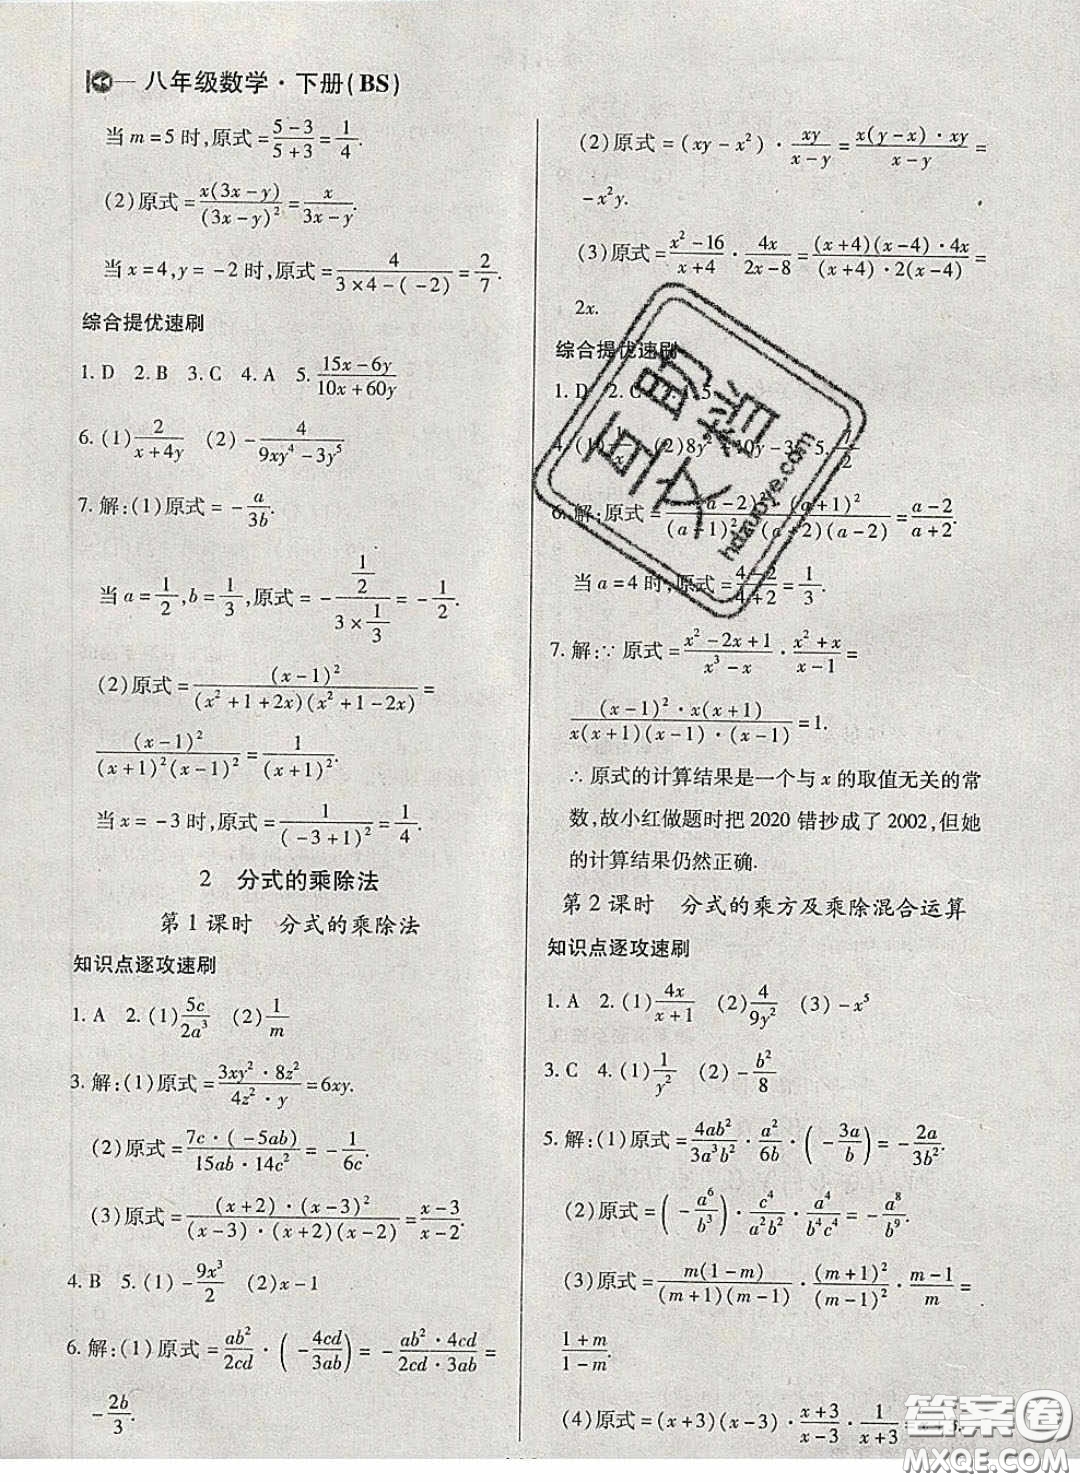 八年级数学·下册(BS)
当 m=5 时,原式=\frac{5-3}{5+3}=\frac{1}{4}.
(2)原式=\frac{x(3x-y)}{(3x-y)^2}=\frac{x}{3x-y}.
当 x=4,y=-2 时,原式=\frac{4}{3×4-(-2)}=\frac{2}{7}.
综合提优速刷
1. D 2. B 3. C 4. A 5. \frac{15x-6y}{10x+60y}
6. (1)\frac{2}{x+4y} (2)-\frac{4}{9xy^4-3y^5}
7. 解:(1)原式=-\frac{a}{3b}.
当 a=\frac{1}{2},b=\frac{1}{3},原式=-\frac{\frac{1}{2}}{3×\frac{1}{3}}=-\frac{1}{2}.
(2)原式=\frac{(x-1)^2}{(x^2+1+2x)(x^2+1-2x)}=
\frac{(x-1)^2}{(x+1)^2(x-1)^2}=\frac{1}{(x+1)^2}.
当 x=-3 时,原式=\frac{1}{(-3+1)^2}=\frac{1}{4}.
2 分式的乘除法
第 1 课时 分式的乘除法
知识点逐攻速刷
1. A 2. (1)\frac{5c}{2a^3} (2)\frac{1}{m}
3. 解:(1)原式=\frac{3xy^2·8z^2}{4z^2·y}=6xy.
(2)原式=\frac{7c·(-5ab)}{15ab·14c^2}=-\frac{1}{6c}.
(3)原式=\frac{(x+2)·(x-3)^2}{(x-3)·(x+2)(x-2)}=\frac{x-3}{x-2}.
4. B 5. (1)-\frac{9x^3}{2} (2)x-1
6. 解:(1)原式=\frac{ab^2}{2cd}·(-\frac{4cd}{3ab})=-\frac{ab^2·4cd}{2cd·3ab}=
-\frac{2b}{3}.
(2)原式=(xy-x^2)·\frac{xy}{x-y}=\frac{x(y-x)·xy}{x-y}=
-x^2y.
(3)原式=\frac{x^2-16}{x+4}·\frac{4x}{2x-8}=\frac{(x+4)(x-4)·4x}{(x+4)·2(x-4)}=
2x.
综合提优速刷
1. D 2. C 5
4. (1) (2)8y^2 5. \frac{1}{2}
6. 解:原式=\frac{(a-2)^2·(a+1)^2}{(a-1)^2 (a+2)(a-2)}=\frac{a-2}{a+2}.
当 a=4 时,原式=\frac{4-2}{4+2}=\frac{1}{3}.
7. 解:∵原式=\frac{x^2-2x+1}{x^3-x}·\frac{x^2+x}{x-1}=
\frac{(x-1)^2·x(x+1)}{x(x+1)(x-1)·(x-1)}=1.
∴原式的计算结果是一个与 x 的取值无关的常
数,故小红做题时把 2020 错抄成了 2002,但她
的计算结果仍然正确.
第 2 课时 分式的乘方及乘除混合运算
知识点逐攻速刷
1. A 2. (1)\frac{4x}{x+1} (2)\frac{4}{9y^2} (3)-x^5
3. C 4. (1)\frac{1}{y^2} (2)-\frac{b^2}{8}
5. 解:(1)原式=\frac{4ab^2}{3a^3b^2}·\frac{a^2}{6b}·(-\frac{3a}{b})=-\frac{2a}{3b^2}.
(2)原式=(-\frac{a^6}{b^3})·\frac{c^4}{a^2b^2}·\frac{a^4}{b^4c^4}=-\frac{a^8}{b^9}.
(3)原式=\frac{m(1-m)}{(m+1)(m-1)}·\frac{(m+1)^2}{(m-1)^2}·\frac{m-1}{m}=
\frac{1+m}{1-m}.
(4)原式=(x+3)(x-3)·\frac{x+3}{x-3}·\frac{1}{x+3}=x+3.
百助
文档
hdzuoye.com
答案圈
MXQE.COM